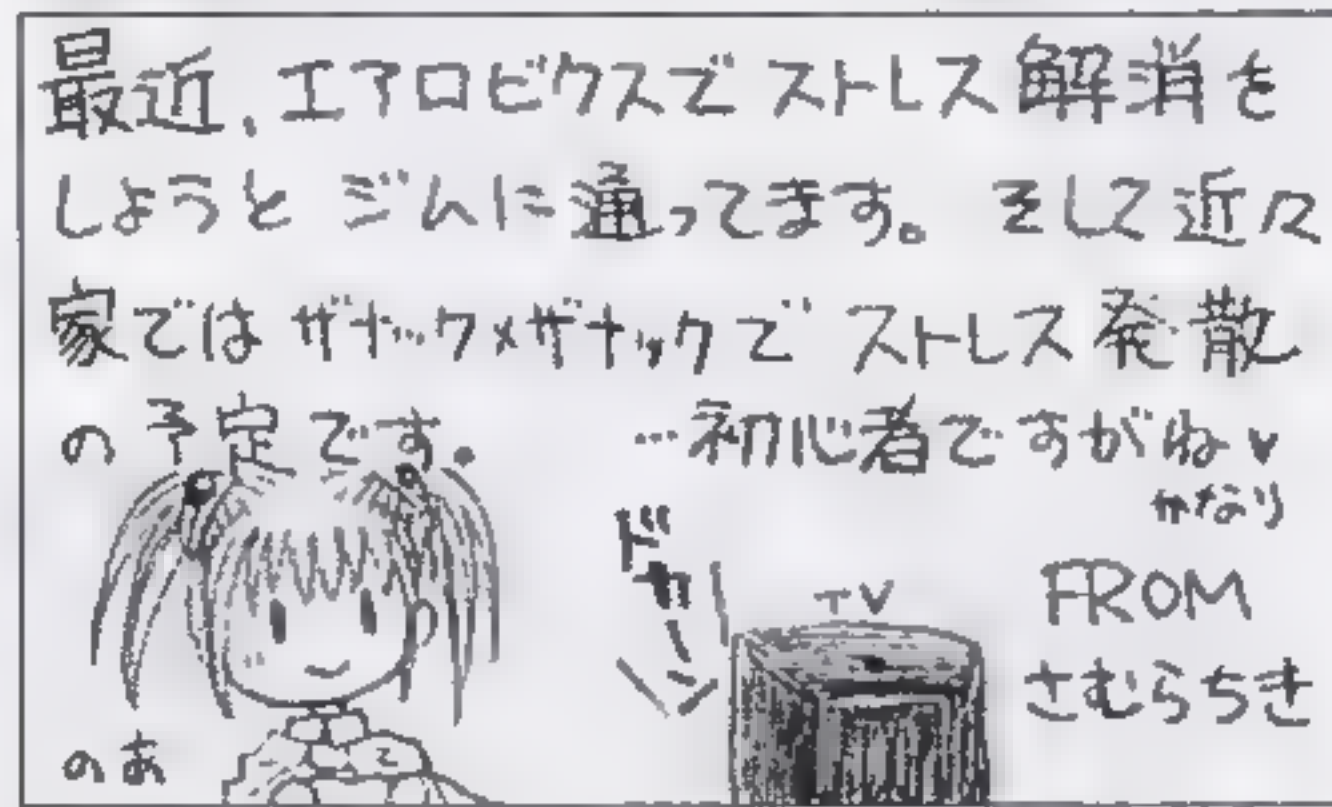 最近、エアロビクスでストレス解消を
しようとジムに通ってます。そして近々
家ではザナック×ザナックでストレス発散
の予定です。 …初心者ですがね♥
かなり
ドカーン
TV
FROM
さむらちき
のあ